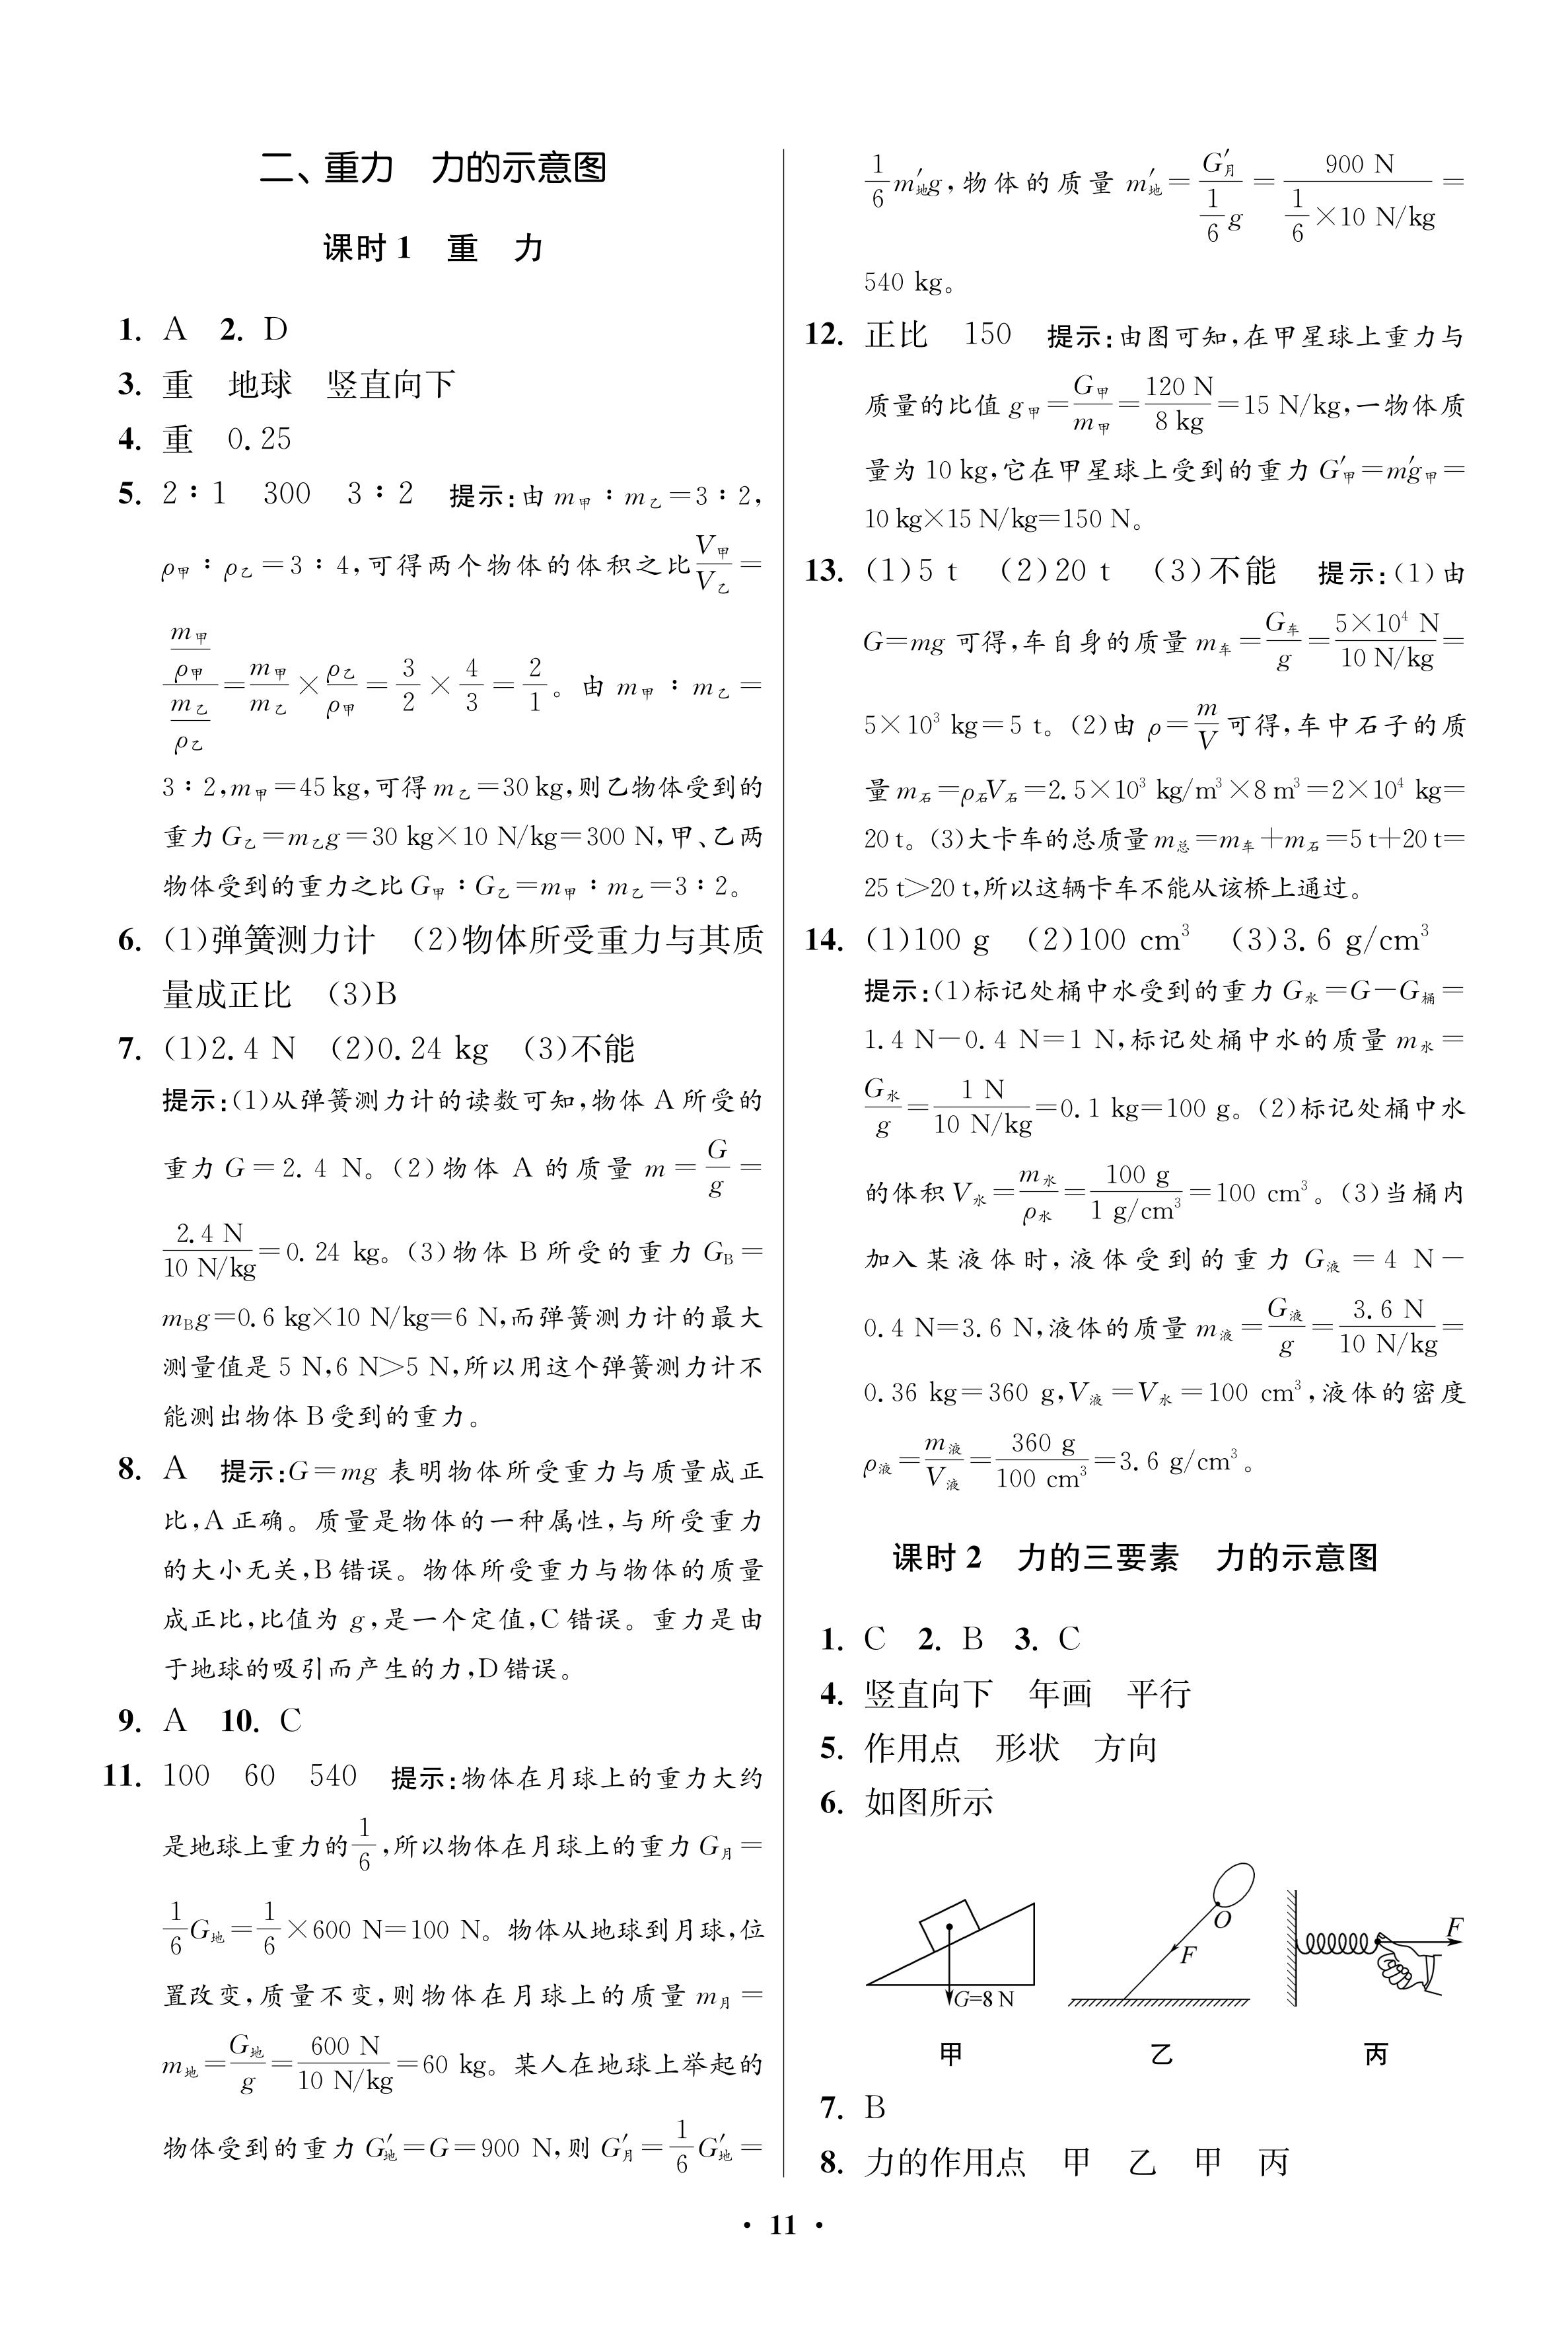 二、重力　力的示意图
课时1　重　力
1. A　2. D
3. 重　地球　竖直向下
4. 重　0.25
5. 2∶1　300　3∶2　提示:由 m甲∶m乙=3∶2,
ρ甲∶ρ乙=3∶4,可得两个物体的体积之比V甲/V乙=
(m甲/ρ甲)/(m乙/ρ乙)=m甲/m乙×ρ乙/ρ甲=3/2×4/3=2/1。由 m甲∶m乙=
3∶2,m甲=45 kg,可得m乙=30 kg,则乙物体受到的
重力G乙=m乙g=30 kg×10 N/kg=300 N,甲、乙两
物体受到的重力之比G甲∶G乙=m甲∶m乙=3∶2。
6. (1)弹簧测力计　(2)物体所受重力与其质
量成正比　(3)B
7. (1)2.4 N　(2)0.24 kg　(3)不能
提示:(1)从弹簧测力计的读数可知,物体A所受的
重力G=2.4 N。(2)物体A的质量m=G/g=
2.4 N/10 N/kg=0.24 kg。(3)物体B所受的重力GB=
mBg=0.6 kg×10 N/kg=6 N,而弹簧测力计的最大
测量值是5 N,6 N>5 N,所以用这个弹簧测力计不
能测出物体B受到的重力。
8. A　提示:G=mg 表明物体所受重力与质量成正
比,A正确。质量是物体的一种属性,与所受重力
的大小无关,B错误。物体所受重力与物体的质量
成正比,比值为g,是一个定值,C错误。重力是由
于地球的吸引而产生的力,D错误。
9. A　10. C
11. 100　60　540　提示:物体在月球上的重力大约
是地球上重力的1/6,所以物体在月球上的重力G月=
1/6G地=1/6×600 N=100 N。物体从地球到月球,位
置改变,质量不变,则物体在月球上的质量m月=
m地=G地/g=600 N/10 N/kg=60 kg。某人在地球上举起的
物体受到的重力G′地=G=900 N,则G′月=1/6G′地=
1/6m′地g,物体的质量m′地=G′月/(1/6g)=900 N/(1/6×10 N/kg)=
540 kg。
12. 正比　150　提示:由图可知,在甲星球上重力与
质量的比值g甲=G甲/m甲=120 N/8 kg=15 N/kg,一物体质
量为10 kg,它在甲星球上受到的重力G′甲=m′g甲=
10 kg×15 N/kg=150 N。
13. (1)5 t　(2)20 t　(3)不能　提示:(1)由
G=mg 可得,车自身的质量m车=G车/g=5×10⁴ N/10 N/kg=
5×10³ kg=5 t。(2)由ρ=m/V可得,车中石子的质
量m石=ρ石V石=2.5×10³ kg/m³×8 m³=2×10⁴ kg=
20 t。(3)大卡车的总质量m总=m车+m石=5 t+20 t=
25 t>20 t,所以这辆卡车不能从该桥上通过。
14. (1)100 g　(2)100 cm³　(3)3.6 g/cm³
提示:(1)标记处桶中水受到的重力G水=G-G桶=
1.4 N-0.4 N=1 N,标记处桶中水的质量m水=
G水/g=1 N/10 N/kg=0.1 kg=100 g。(2)标记处桶中水
的体积V水=m水/ρ水=100 g/1 g/cm³=100 cm³。(3)当桶内
加入某液体时,液体受到的重力G液=4 N-
0.4 N=3.6 N,液体的质量m液=G液/g=3.6 N/10 N/kg=
0.36 kg=360 g,V液=V水=100 cm³,液体的密度
ρ液=m液/V液=360 g/100 cm³=3.6 g/cm³。
课时2　力的三要素　力的示意图
1. C　2. B　3. C
4. 竖直向下　年画　平行
5. 作用点　形状　方向
6. 如图所示
G=8 N
O
F
F
甲　乙　丙
7. B
8. 力的作用点　甲　乙　甲　丙
· 11 ·